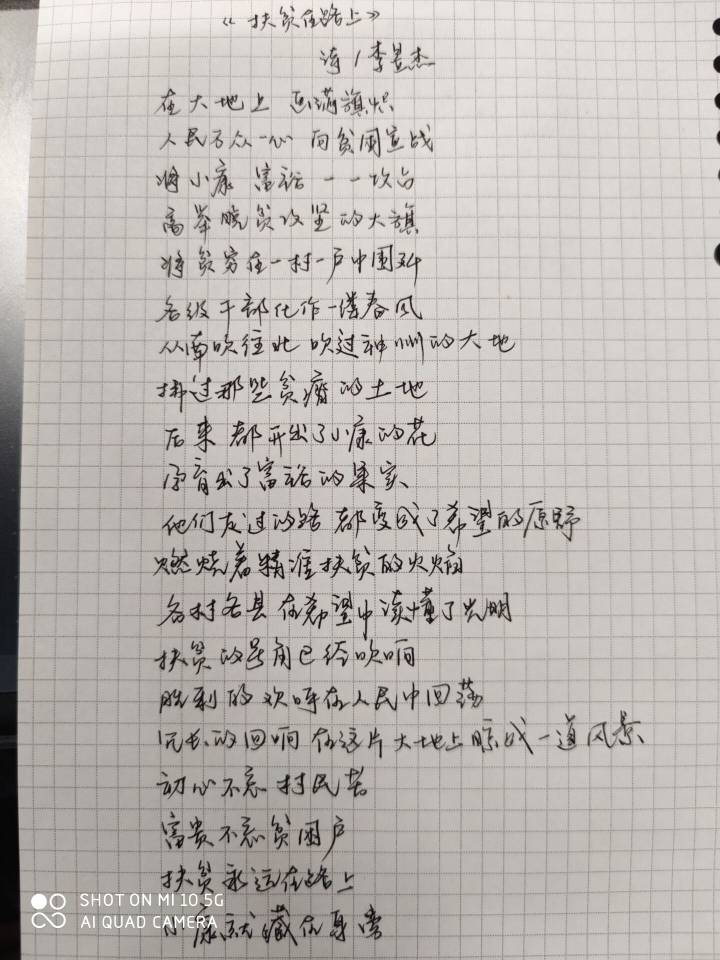 《扶贫在路上》
诗/李昱杰
在大地上 遍满旗帜
人民万众一心 向贫困宣战
将小康 富裕 一一
高举脱贫攻坚的大旗
将贫穷在一村一户中围歼
各级干部化作一缕春风
从南吹往北 吹过神州的大地
拂过那些贫瘠的土地
后来 都开出了小康的花
孕育出了富裕的果实
他们走过的路 都变成了希望的原野
燃烧着精准扶贫的火焰
各村各县在希望中读懂了光明
扶贫的号角已经吹响
胜利的欢呼在人民中回荡
沉长的回响 在这片大地上晾成一道风景
初心不忘村民苦
富贵不忘贫困户
扶贫永远在路上
小康就藏在身旁
SHOT ON MI 10 5G
AI QUAD CAMERA